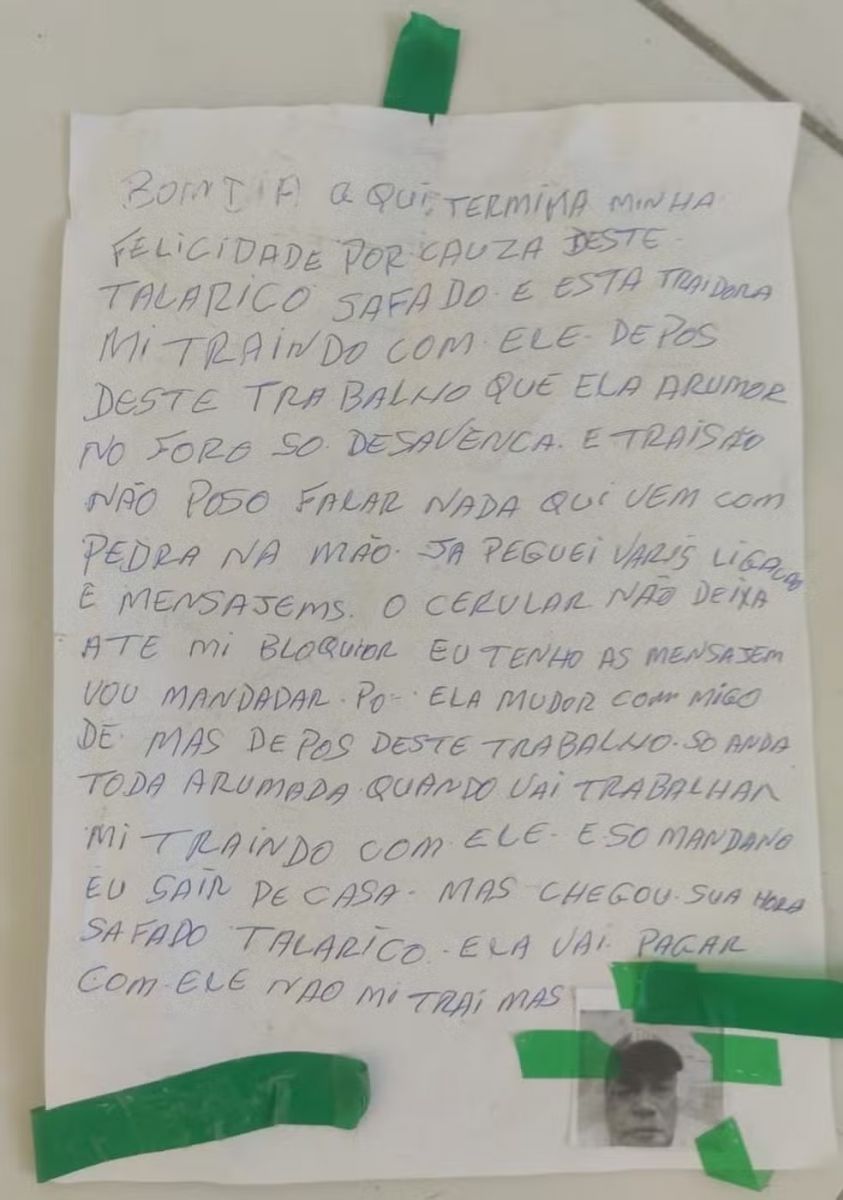 BOM DIA AQUI TERMINA MINHA
FELICIDADE POR CAUZA DESTE
TALARICO SAFADO E ESTA TRAIDORA
MI TRAINDO COM ELE DEPOS
DESTE TRABALHO QUE ELA ARUMOR
NO FORO SO DESAVENCA. E TRAISÃO
NÃO POSO FALAR NADA QUI VEM COM
PEDRA NA MÃO. JA PEGUEI VARIS
E MENSAJEMS. O CERULAR NÃO DEIXA
ATE MI BLOQUIOR EU TENHO AS MENSAJEM
VOU MANDADAR. PO- ELA MUDOR COM MIGO
DE MAS DEPOS DESTE TRABALHO. SO ANDA
TODA ARUMADA QUANDO VAI TRABALHAR
MI TRAINDO COM ELE- E SO MANDANO
EU SAIR DE CASA- MAS CHEGOU SUA HORA
SAFADO TALARICO. ELA VAI PAGAR
COM ELE NAO MI TRAI MAS